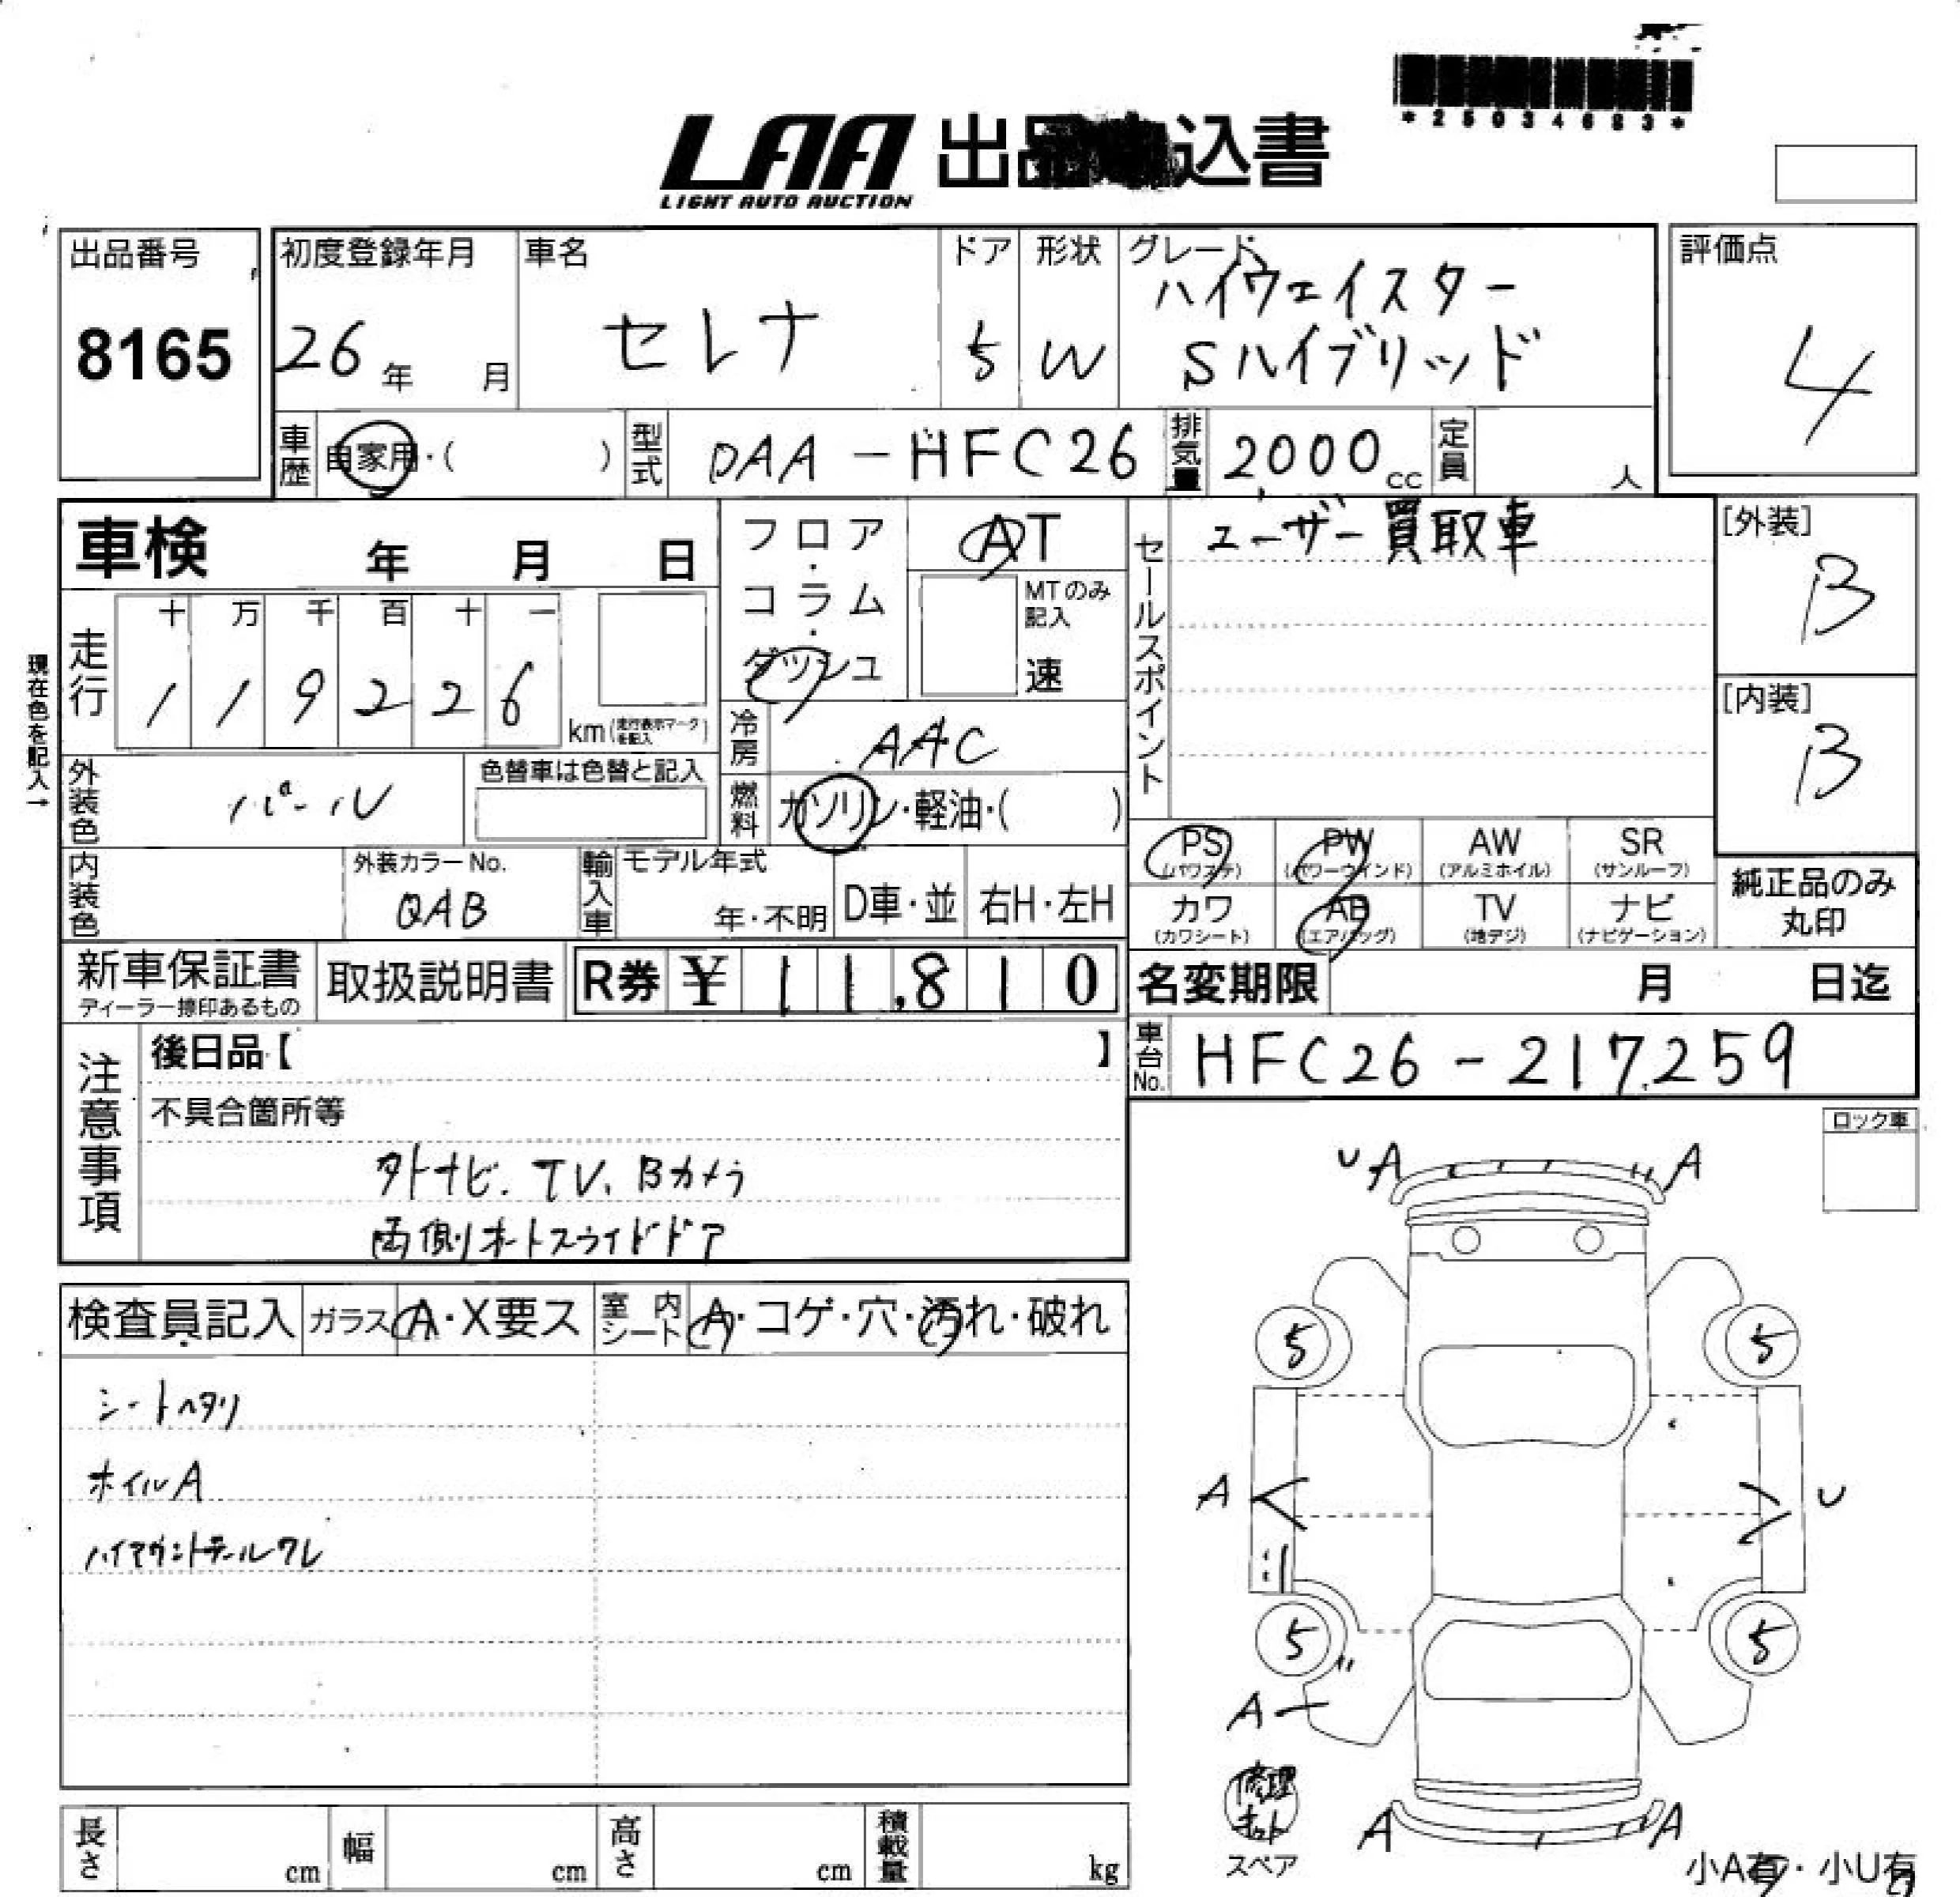 *25034683*
LAA 出品申込書
LIGHT AUTO AUCTION
出品番号
8165
初度登録年月
26年 月
車名
セレナ
ドア
5
形状
W
グレード
ハイウェイスター
Sハイブリッド
評価点
4
車歴
自家用・( )
型式
DAA-HFC26
排気量
2000cc
定員
人
車検 年 月 日
フロア・コラム・ダッシュ
AT
MTのみ記入
速
セールスポイント
ユーザー買取車
[外装]
B
[内装]
B
現在色を記入→
走行
十 万 千 百 十 一
1 1 9 2 2 6
km(走行表示マークを記入)
冷房
AAC
外装色
パール
色替車は色替と記入
燃料
ガソリン・軽油・( )
内装色
外装カラーNo.
QAB
輸入車
モデル年式
年・不明
D車・並
右H・左H
PS
(パワステ)
PW
(パワーウインド)
AW
(アルミホイル)
SR
(サンルーフ)
カワ
(カワシート)
AB
(エアバッグ)
TV
(地デジ)
ナビ
(ナビゲーション)
純正品のみ
丸印
新車保証書
ディーラー捺印あるもの
取扱説明書
R券 ¥11,810
名変期限 月 日迄
車台No.
HFC26-217259
注意事項
後日品【 】
不具合箇所等
外ナビ. TV. Bカメラ
両側オートスライドドア
ロック車
検査員記入
ガラス
A・X要ス
室内シート
A・コゲ・穴・汚れ・破れ
シートヘタリ
ホイルA
ハイマウントテールワレ
U A
A
5
5
A
U
5
5
A
修理キット
スペア
A
A
小A有・小U有
長さ cm
幅 cm
高さ cm
積載量 kg